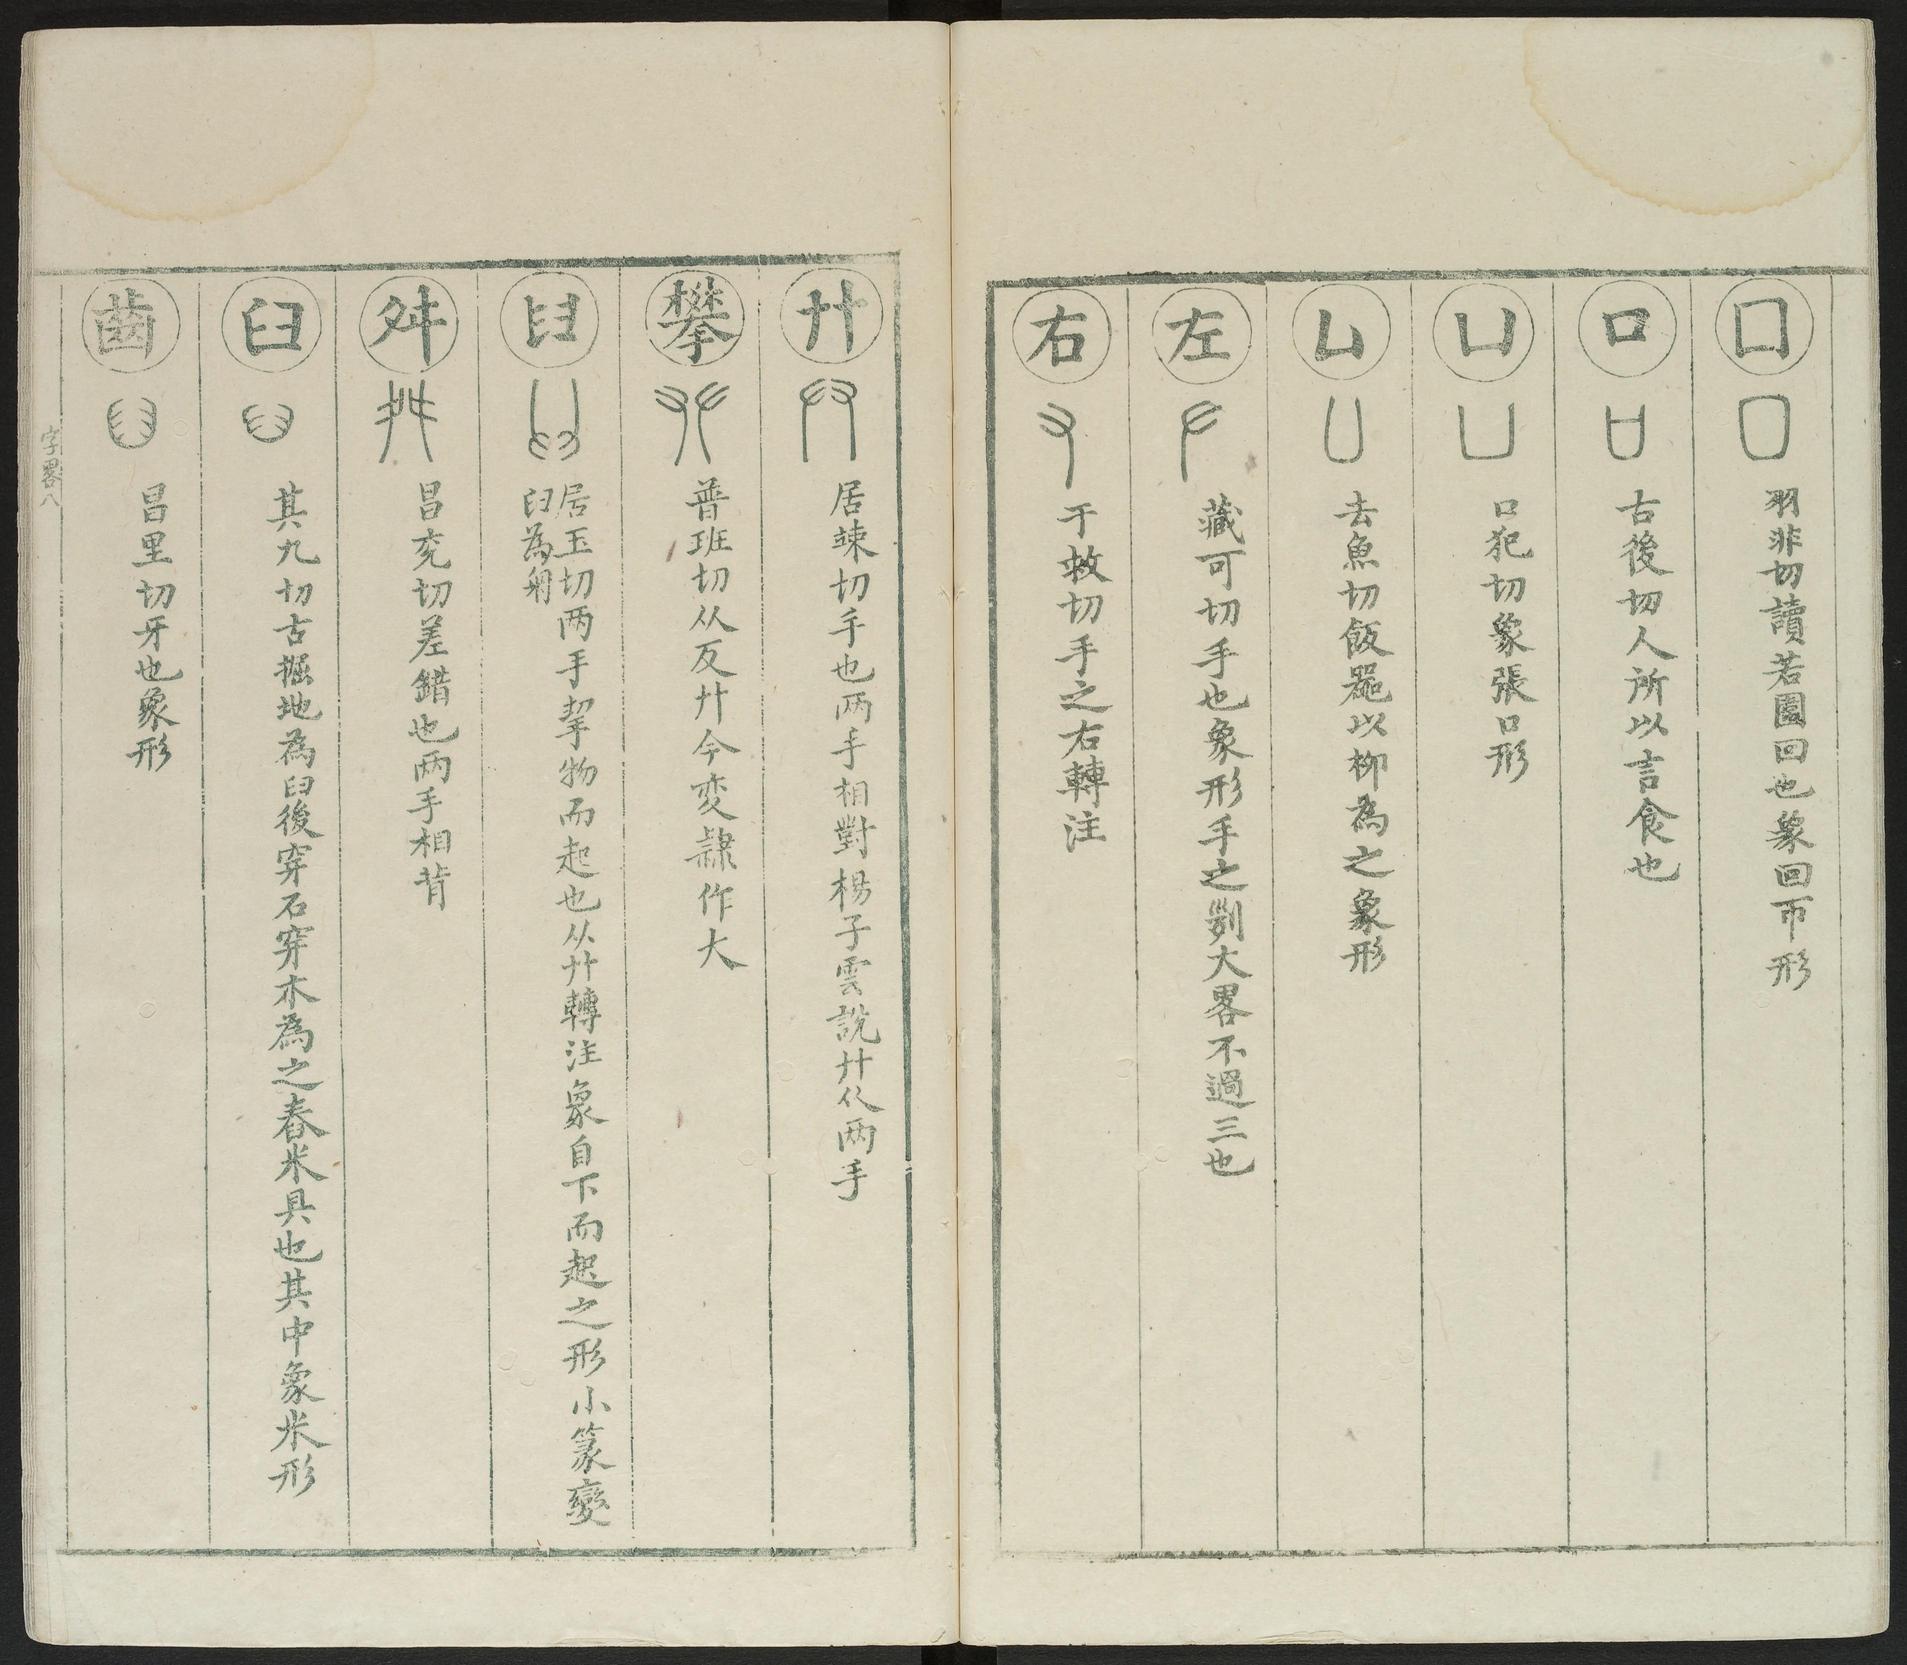 囗 羽非切讀若圍回也象回帀形
口 古後切人所以言食也
凵 口犯切象張口形
𠙴 去魚切飯器以柳為之象形
左 藏可切手也象形手之列大畧不過三也
右 于救切手之右轉注
廾 居竦切手也两手相對楊子雲說廾从两手
攀 普班切从反廾今変隷作大
𦥑 居玉切两手挈物而起也从廾轉注象自下而起之形小篆變
𦥑為舁
舛 昌兖切差錯也两手相背
臼 其九切古掘地為臼後穿石穿木為之舂米具也其中象米形
齒 昌里切牙也象形
字畧八